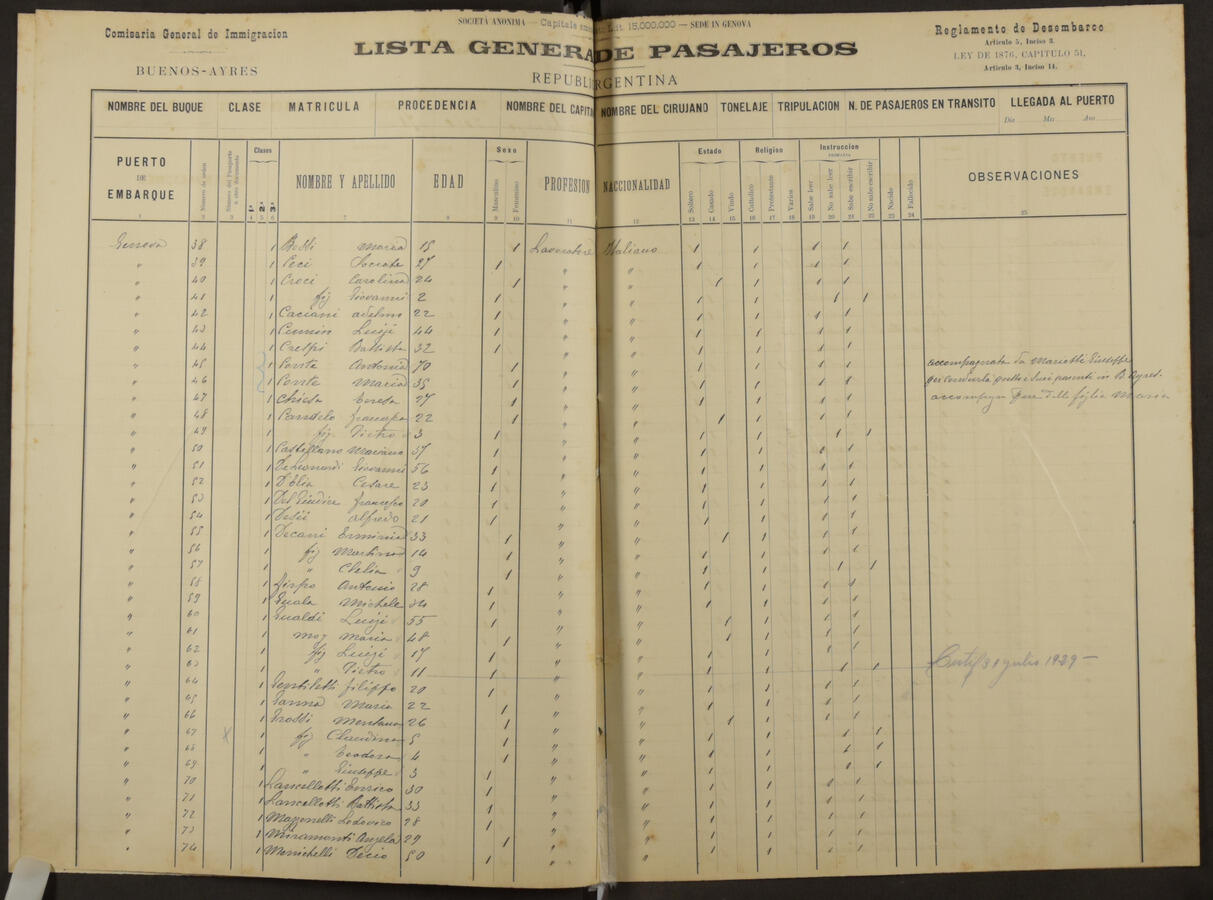 SOCIETÀ ANONIMA — Capitale Lit. 15,000,000 — SEDE IN GENOVA
Comisaria General de Immigracion
BUENOS-AYRES
LISTA GENERA DE PASAJEROS
REPUBLI RGENTINA
Reglamento de Desembarco
Articulo 5, Inciso 3.
LEY DE 1876, CAPITULO 51,
Articulo 3, Inciso 14.
NOMBRE DEL BUQUE CLASE MATRICULA PROCEDENCIA NOMBRE DEL CAPITA NOMBRE DEL CIRUJANO TONELAJE TRIPULACION N. DE PASAJEROS EN TRANSITO LLEGADA AL PUERTO
Dia Mes Ano
PUERTO DE EMBARQUE Número de orden Clases 1ª 2ª 3ª NOMBRE Y APELLIDO EDAD Sexo Masculino Femenino PROFESION NACCIONALIDAD Estado Soltero Casado Viudo Religion Catholico Protestante Varios Instruccion PRIMARIA Sabe leer No sabe leer Sabe escribir No sabe escribir Nacido Fallecido OBSERVACIONES
2 3 4 5 6 7 8 9 10 11 12 13 14 15 16 17 18 19 20 21 22 23 24 25
Genova 38 1 Maria 15 1 Lavoratore Italiano 1 1 1 1
" 39 1 Ceci Socrate 27 1 " " 1 1 1 1
" 40 1 Croci Carolina 24 1 " " 1 1 1 1
" 41 1 fig Giovanni 2 1 " " 1 1 1 1
" 42 1 Caciani Adelmo 22 1 " " 1 1 1 1
" 43 1 Luigi 44 1 " " 1 1 1 1
" 44 1 Crespi Battista 32 1 " " 1 1 1 1
" 45 1 Conte Antonia 70 1 " " 1 1 1 1 accompagnata da Mariotti Giuseppe
" 46 1 Conte Maria 35 1 " " 1 1 1 1 parenti in B. Ayres
" 47 1 Chiesa Teresa 27 1 " " 1 1 1 1 figlia Maria
" 48 1 22 1 " " 1 1 1 1
" 49 1 fig Pietro 3 1 " " 1 1 1 1
" 50 1 Castellano Mariano 37 1 " " 1 1 1 1
" 51 1 Deleonardi Giovanni 56 1 " " 1 1 1 1
" 52 1 D'Elia Cesare 23 1 " " 1 1 1 1
" 53 1 Del Giudice Francesco 20 1 " " 1 1 1 1
" 54 1 Alfredo 21 1 " " 1 1 1 1
" 55 1 Decani Erminia 33 1 " " 1 1 1 1
" 56 1 fig Martino 14 1 " " 1 1 1 1
" 57 1 " Clelia 9 1 " " 1 1 1 1
" 58 1 Antonio 28 1 " " 1 1 1 1
" 59 1 Guala Michele 34 1 " " 1 1 1 1
" 60 1 Gualdi Luigi 55 1 " " 1 1 1 1
" 61 1 mog Maria 48 1 " " 1 1 1 1
" 62 1 fig Luigi 17 1 " " 1 1 1 1
" 63 1 " Pietro 11 1 " " 1 1 1 1 julio 1929 —
" 64 1 Gentiletti Filippo 20 1 " " 1 1 1 1
" 65 1 Maria 22 1 " " 1 1 1 1
" 66 1 Grossi Mentana 26 1 " " 1 1 1 1
" 67 X 1 fig 5 1 " " 1 1 1 1
" 68 1 " Teodora 4 1 " " 1 1 1 1
" 69 1 " Giuseppe 3 1 " " 1 1 1 1
" 70 1 Lancellotti Enrico 30 1 " " 1 1 1 1
" 71 1 Lancellotti Battista 33 1 " " 1 1 1 1
" 72 1 Lodovico 28 1 " " 1 1 1 1
" 73 1 Miramonti Angela 29 1 " " 1 1 1 1
" 74 1 Menichelli Decio 50 1 " " 1 1 1 1